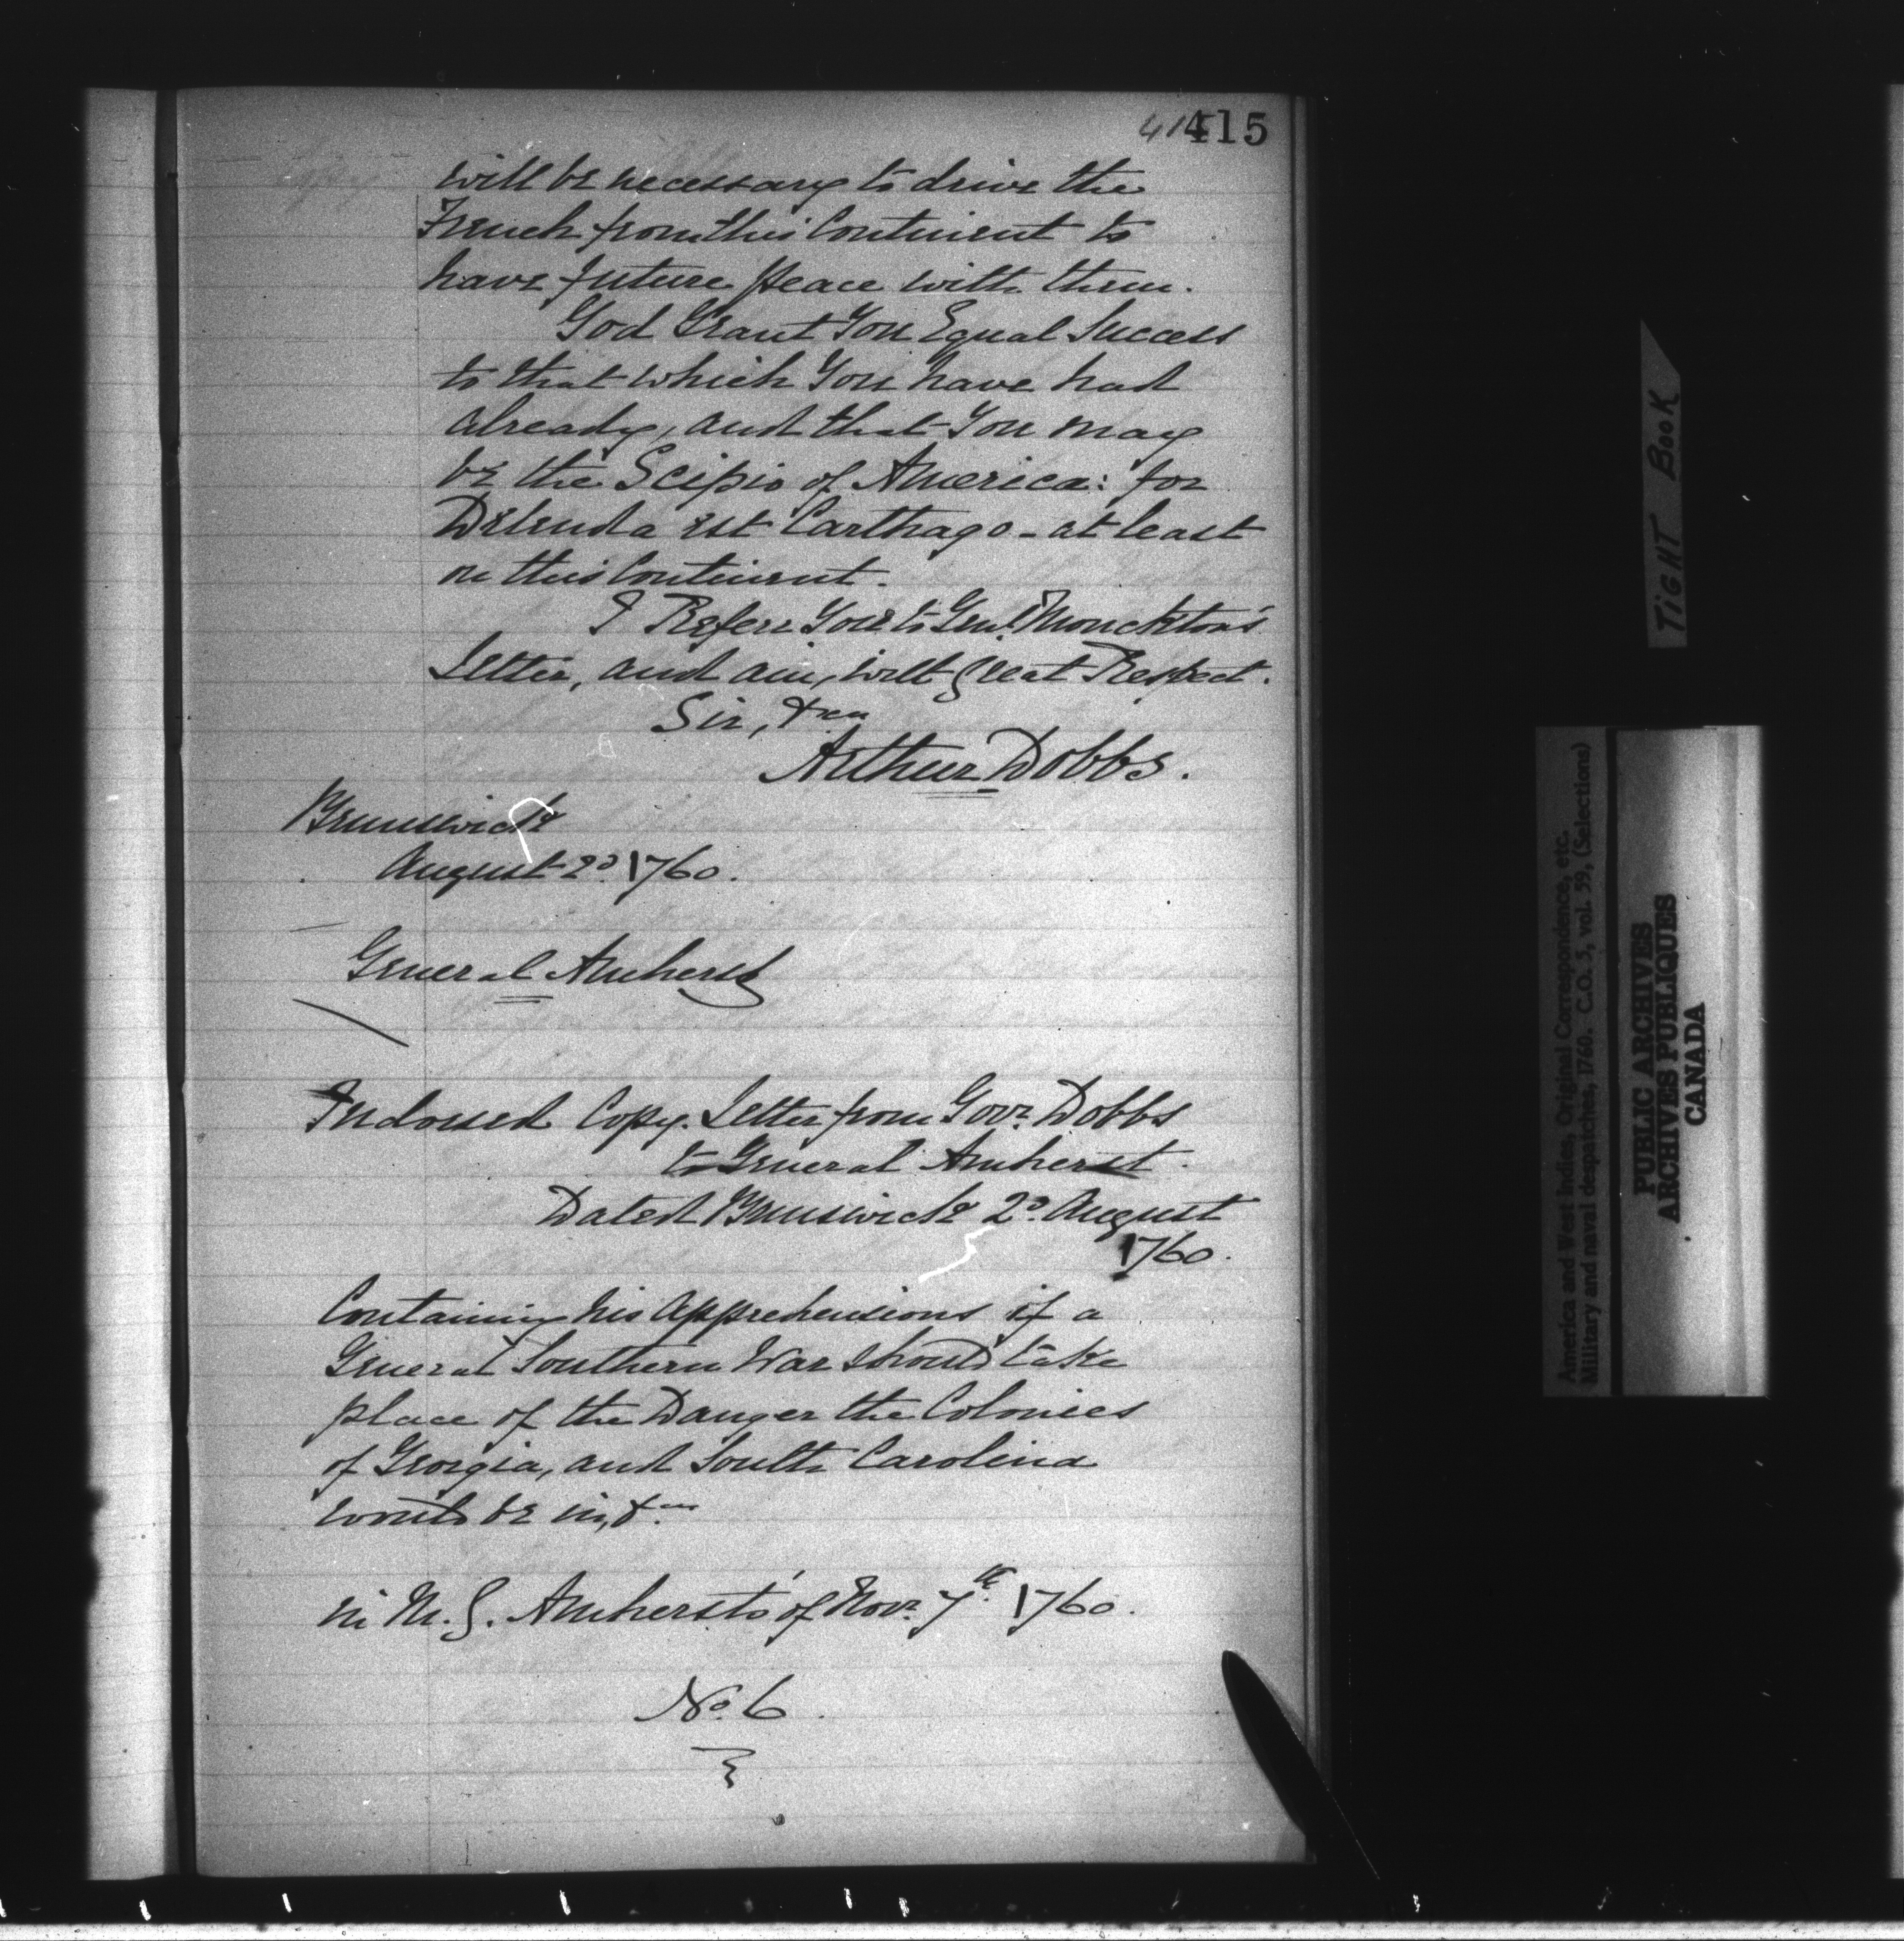 415
will be necessary to drive the
French from this Continent to
have future peace with them.
God Grant You Equal Success
to that which You have had
already, and that You may
be the Scipio of America: for
Delenda est Carthago - at least
on this Continent.
I Refer You to Genl. Monckton's
Letter, and am, with great Respect.
Sir, &ca
Arthur Dobbs.
Brunswick
August 2d. 1760.
General Amherst
Indorsed Copy. Letter from Govr. Dobbs
to General Amherst.
Dated Brunswick 2d. August
1760.
Containing his Apprehensions if a
General Southern War should take
place of the Danger the Colonies
of Georgia, and South Carolina
would be in, &ca
in M. G. Amherst's of Novr. 7th. 1760.
No. 6.
TIGHT BOOK
America and West Indies, Original Correspondence, etc.
Military and naval despatches, 1760. C.O. 5, vol. 59, (Selections)
PUBLIC ARCHIVES
ARCHIVES PUBLIQUES
CANADA